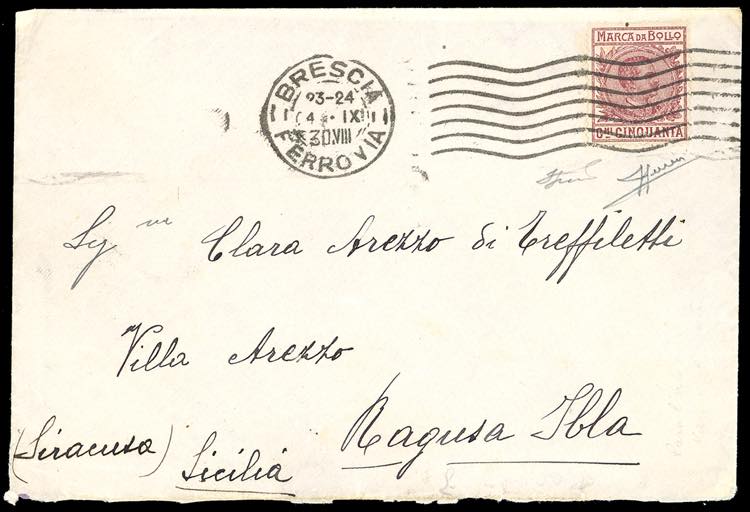 BRESCIA
23-24
4 · IX
30.VIII
FERROVIA
MARCA DA BOLLO
Cmi CINQUANTA
Sigra Clara Arezzo di Treffiletti
Villa Arezzo
Ragusa Ibla
(Siracusa) Sicilia